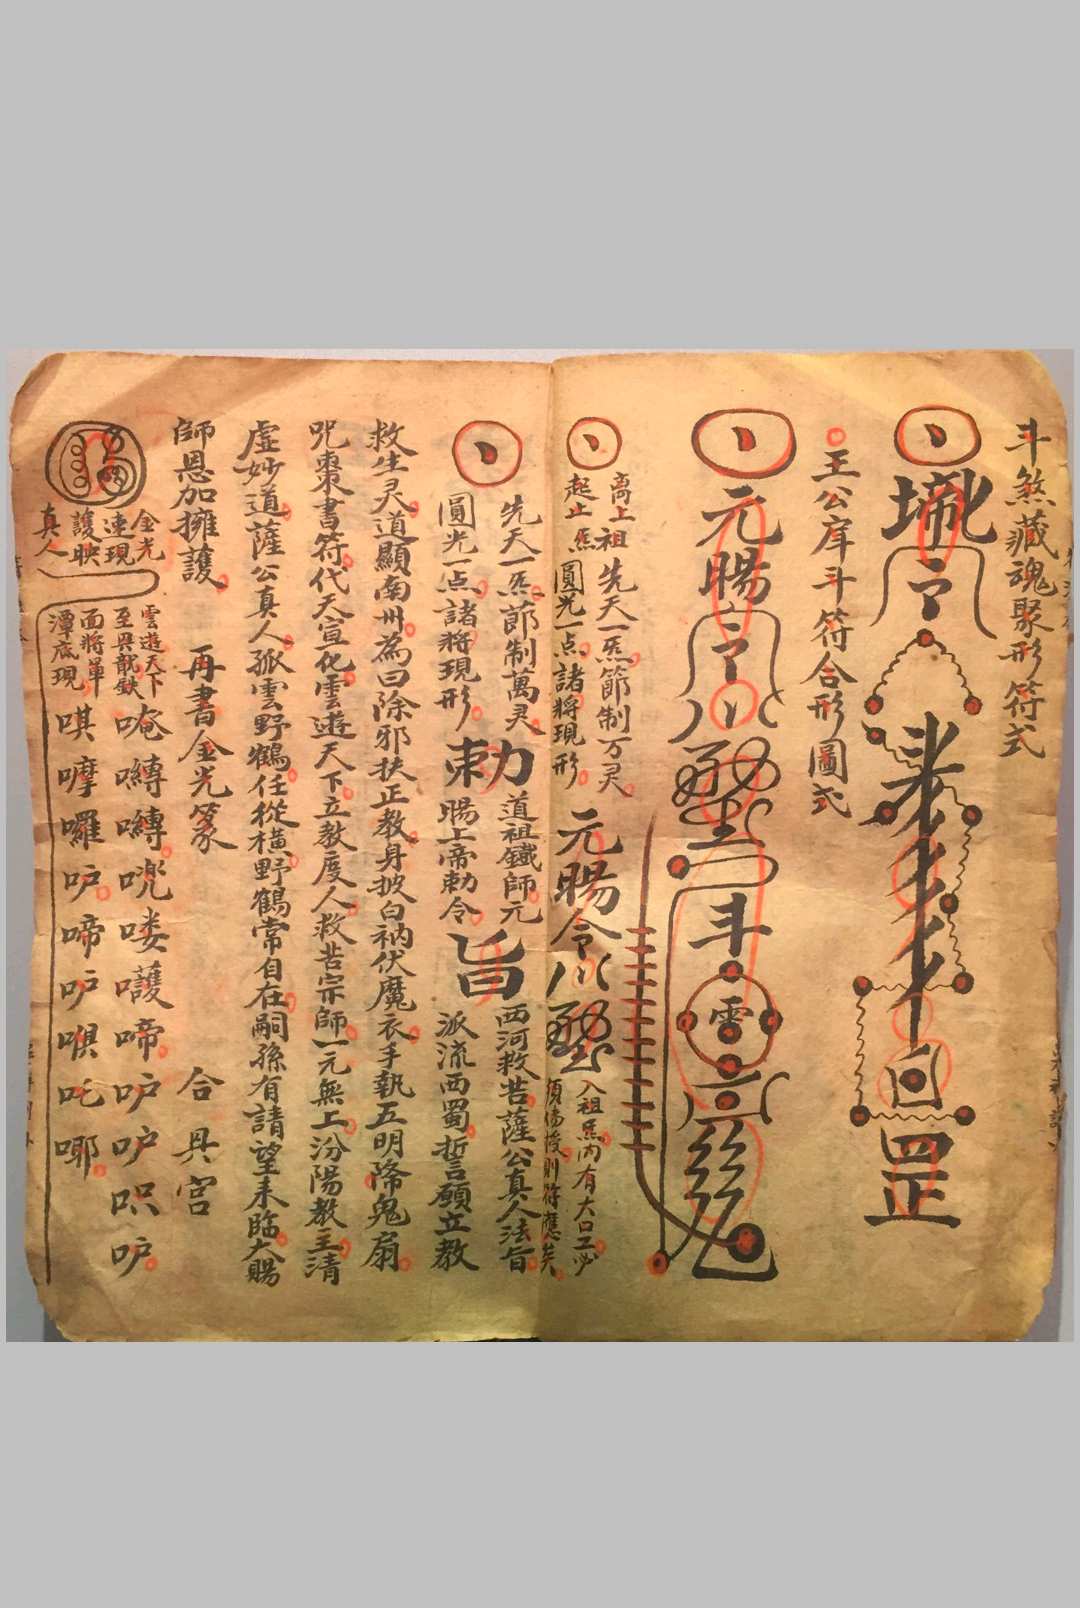 斗煞藏魂聚形符式
罡
王公庠斗符合形圖式
元暘
斗
雷
离上祖
起止炁
先天一炁節制万灵
圓光一点諸將現形
元暘令
入祖炁内有大口工必
須傷後則符應矣
先天一炁節制萬灵
圓光一点諸將現形
勅
道祖鐡師元
暘上帝勅令
旨
西河救苦薩公真人法旨
派流西蜀誓願立教
救生灵道顯南州為曰除邪扶正教身披白衲伏魔衣手執五明降鬼扇
咒棗書符代天宣化雲遊天下立教度人救苦宗師一元無上汾陽教主清
虚妙道薩公真人孤雲野鶴任從橫野鶴常自在嗣孫有請望来臨大賜
師恩加擁護 再書金光篆 合具宮
金光
速現
護映
真人
雲遊天下
至具
面將單
潭底現
唵嚩嚩㖡喽護啼嘑嘑呮嘑
唭嚤囉嘑啼嘑唄吒㖿